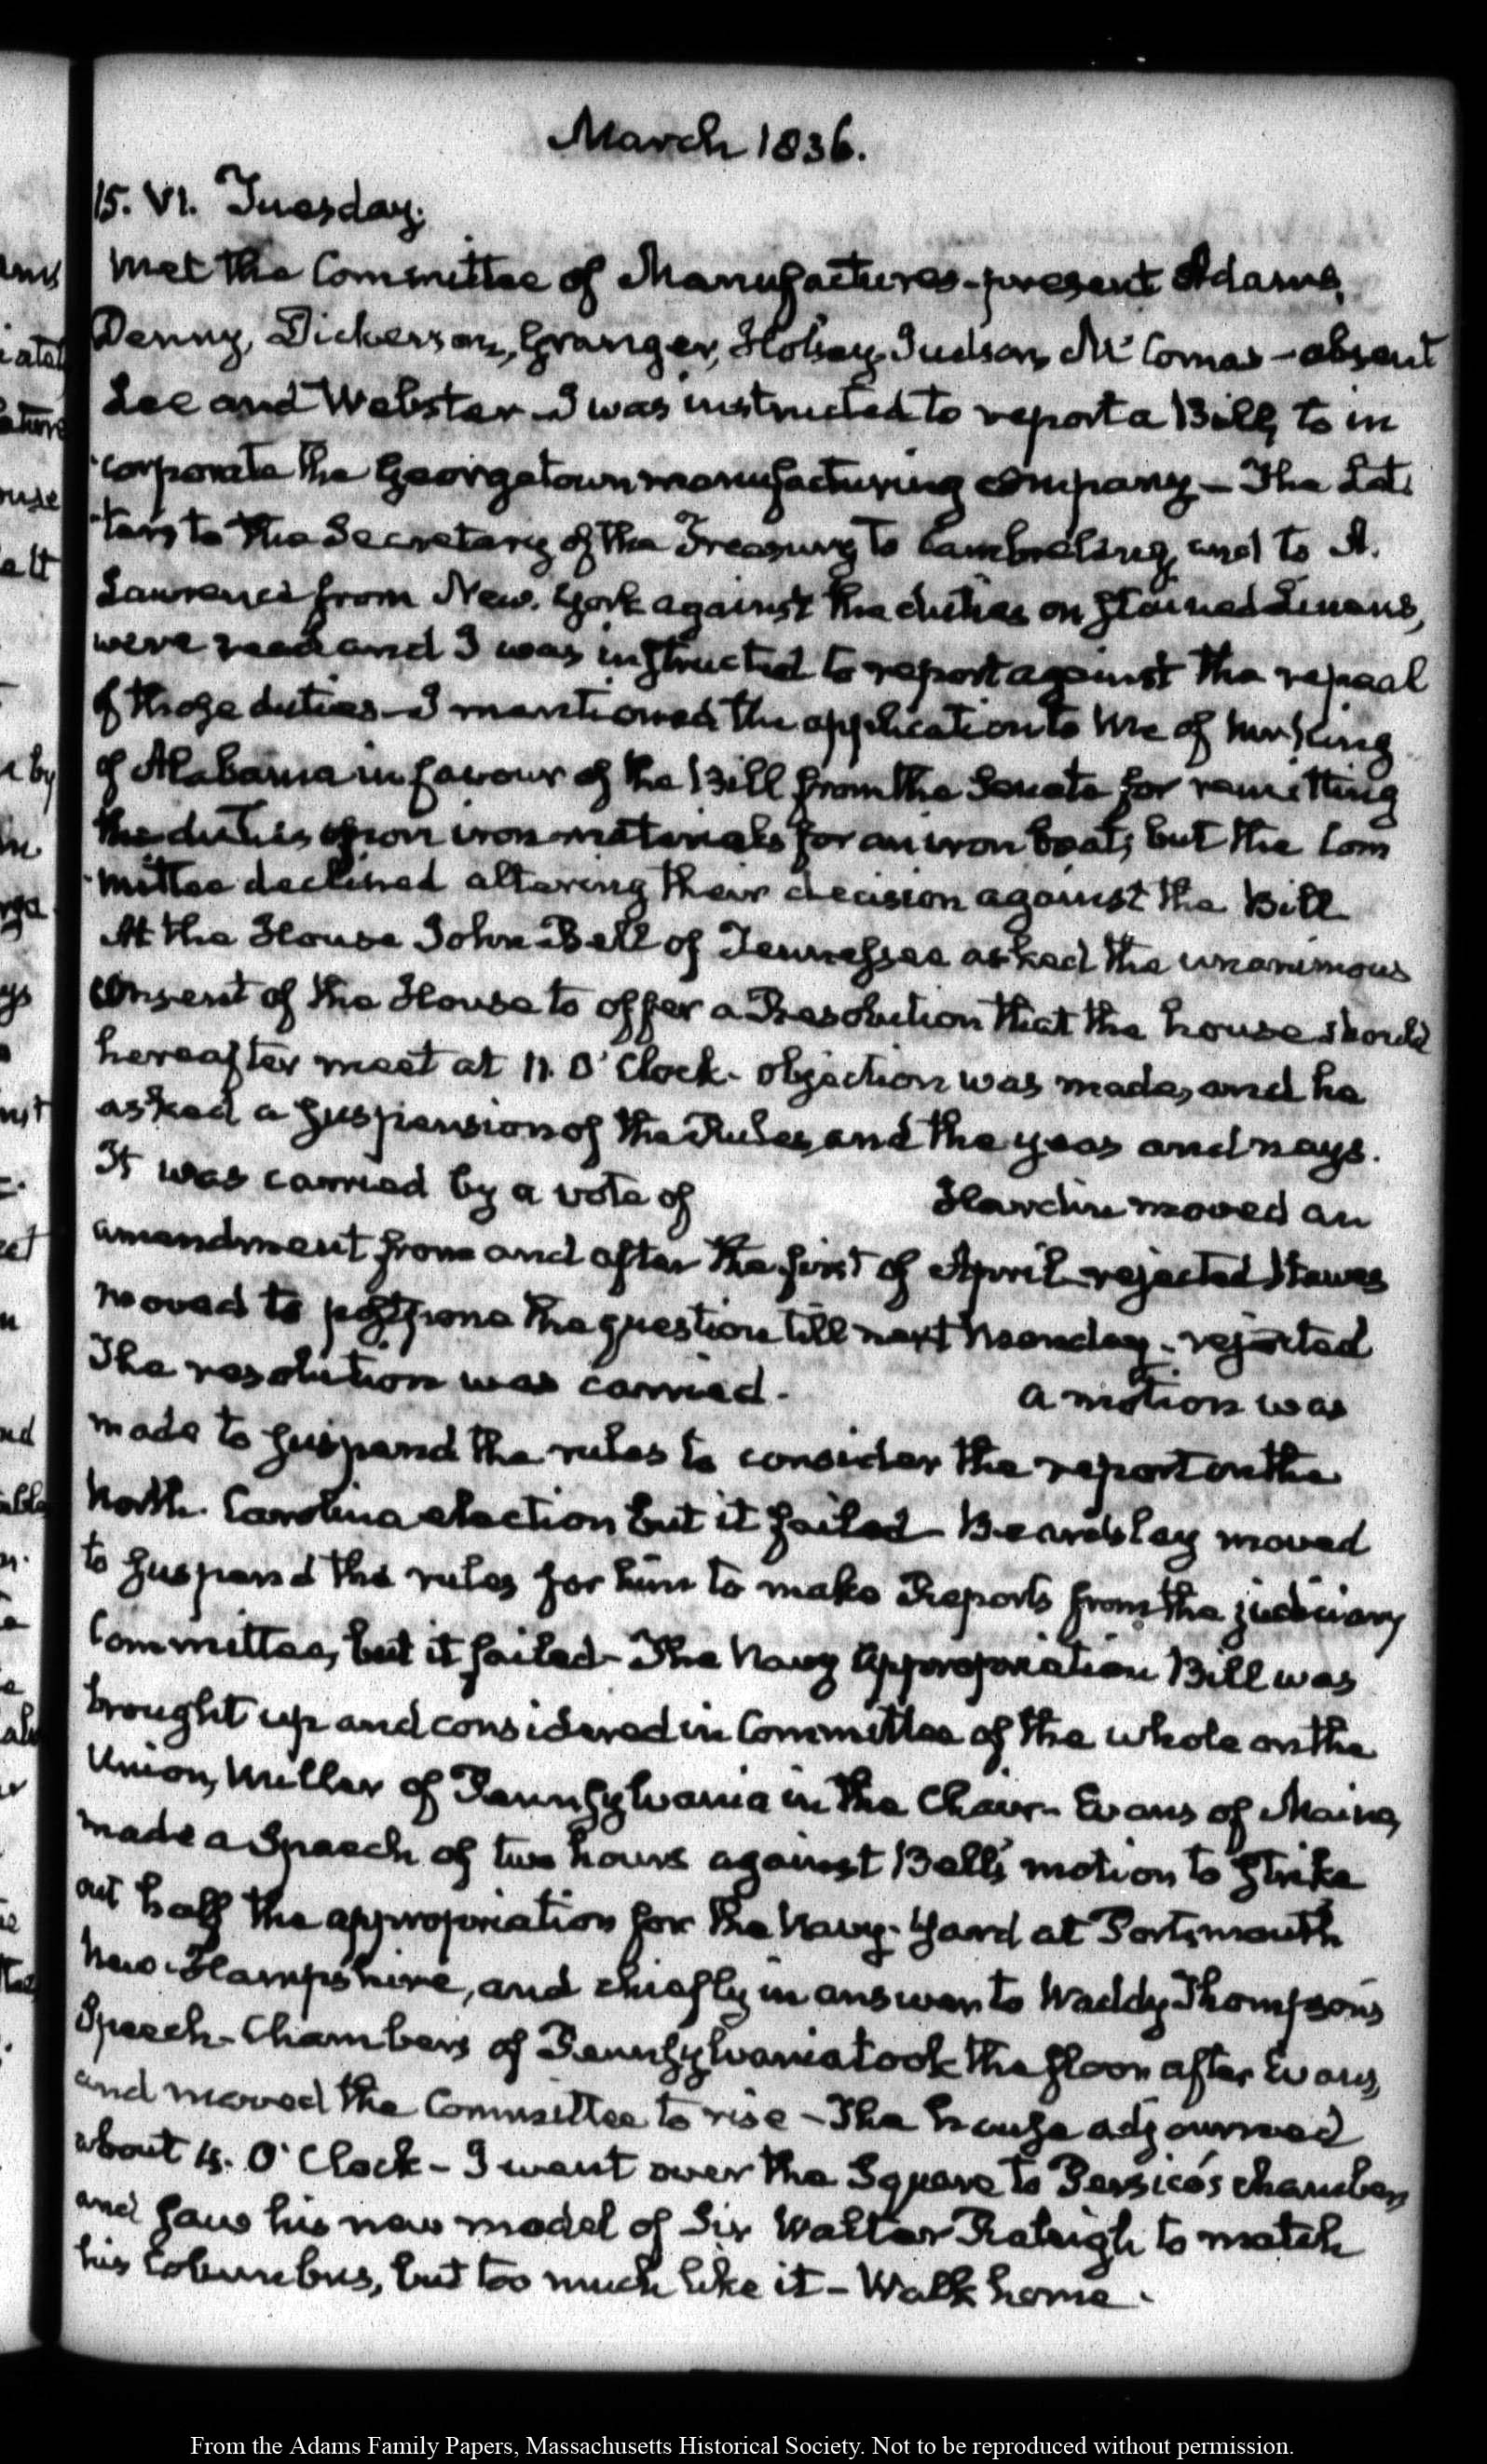 March 1836.
15. VI. Tuesday.
Met the Committee of Manufactures - present Adams,
Denny, Dickerson, Granger, Halsey, Judson, McComas - absent
Lee and Webster - I was instructed to report a Bill, to in
corporate the Georgetown manufacturing company - The Let
ters to the Secretary of the Treasury to Cambreleng, and to A.
Lawrence from New York against the duties on stained Linens,
were read and I was instructed to report against the repeal
of those duties - I mentioned the application to me of Mr King
of Alabama in favour of the Bill from the Senate for remitting
the duties upon iron materials for an iron boat; but the Com
mittee declined altering their decision against the Bill
At the House John Bell of Tennessee asked the unanimous
consent of the House to offer a Resolution that the house should
hereafter meet at 11. O'Clock - objection was made, and he
asked a suspension of the Rules, and the yeas and nays.
It was carried by a vote of Hardin moved an
amendment from and after the first of April - rejected Hawes
moved to postpone the question till next Monday - rejected
The resolution was carried. A motion was
made to suspend the rules to consider the report on the
North Carolina election but it failed - Beardsley moved
to suspend the rules for him to make Reports from the judiciary
Committee, but it failed - The Navy Appropriation Bill was
brought up and considered in Committee of the whole on the
Union, Miller of Pennsylvania in the Chair - Evans of Maine,
made a Speech of two hours against Bell's motion to strike
out half the appropriation for the Navy-Yard at Portsmouth
New-Hampshire, and chiefly in answer to Waddy Thompson's
Speech - Chambers of Pennsylvania took the floor after Evans,
and moved the Committee to rise - The house adjourned
about 4. O'Clock - I went over the Square to Persico's chamber,
and saw his new model of Sir Walter Raleigh to match
his Columbus, but too much like it - Walk home.
From the Adams Family Papers, Massachusetts Historical Society. Not to be reproduced without permission.